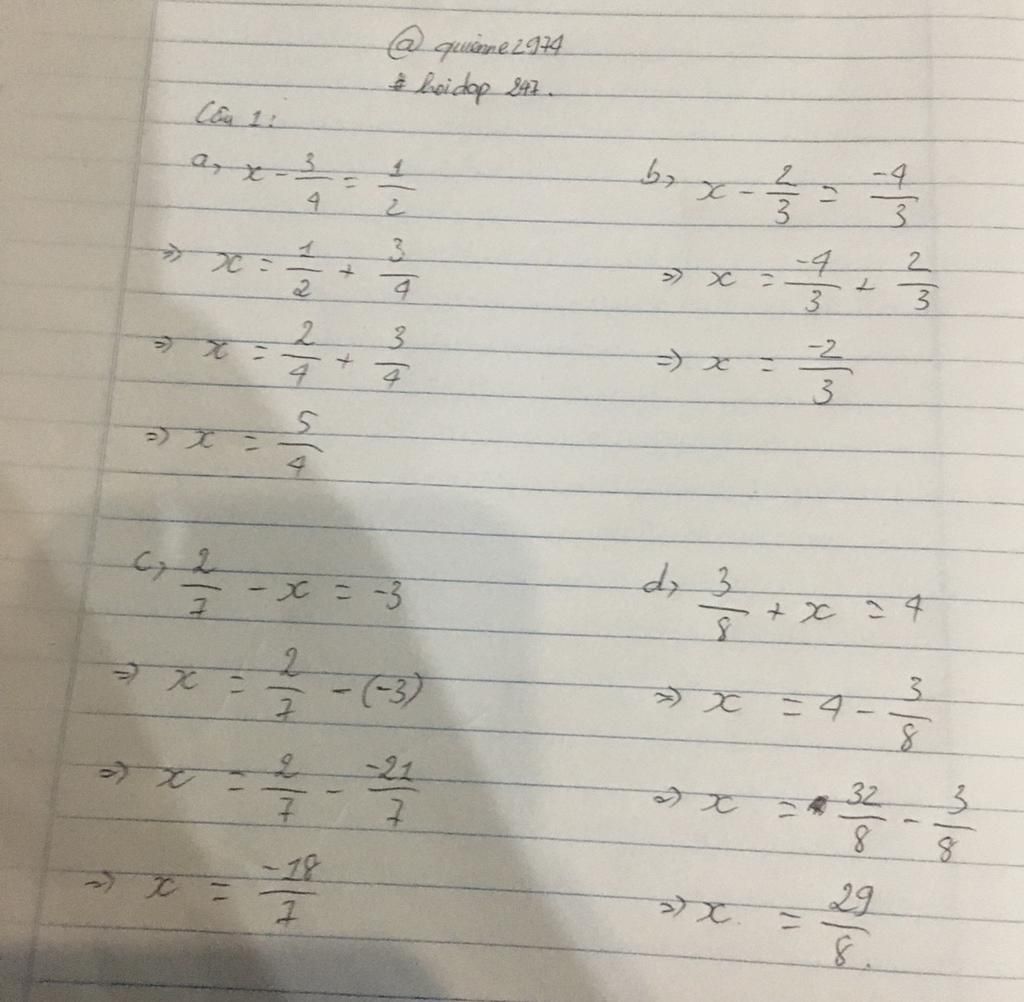 @ quienne2974
# hoidap 247.
Câu 1:
a, x - 3/4 = 1/2
=> x = 1/2 + 3/4
=> x = 2/4 + 3/4
=> x = 5/4
b, x - 2/3 = -4/3
=> x = -4/3 + 2/3
=> x = -2/3
c, 2/7 - x = -3
=> x = 2/7 - (-3)
=> x = 2/7 - -21/7
=> x = -18/7
d, 3/8 + x = 4
=> x = 4 - 3/8
=> x = 32/8 - 3/8
=> x = 29/8.